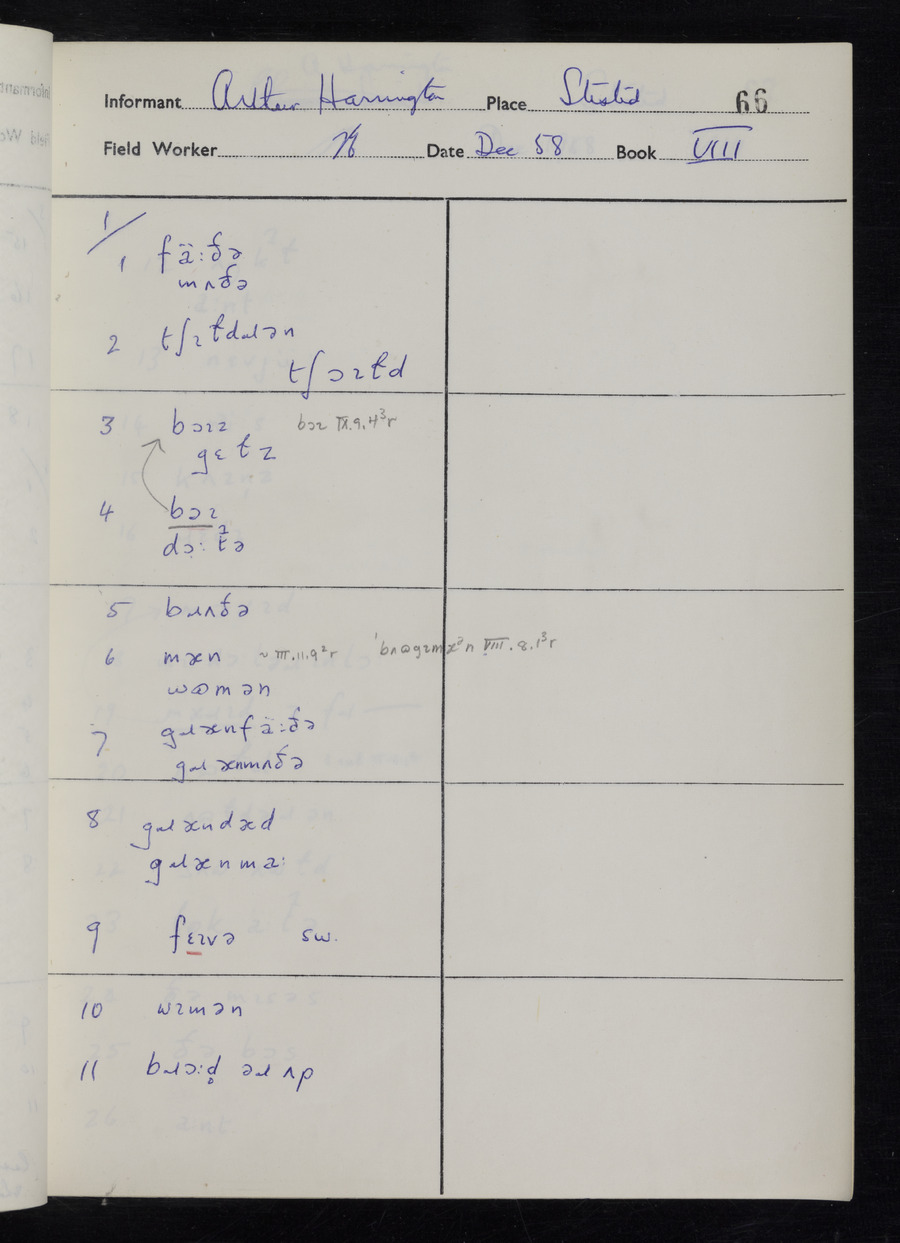 Informant Arthur Harrington Place Stisted 66
Field Worker Date Dec 58 Book VIII
1/
1 fä:ðə
mʌðə
2 tʃɪɫdɹən
tʃɔɪɫd
3 bɔɪz bɔɪ IX.9.4³r
gɛɫz
4 bɔɪ
dɔ̣:tə
5 bɹʌðə
6 mæn ~ III.11.9²r VIII.8.1³r
wɷmən
7 gɹænfä:ðə
gɹænmʌðə
8 gɹændæd
gɹænma:
9 fɛɪvə sw.
10 wɪmən
11 bɹɔ:d̥ əɹ ʌp